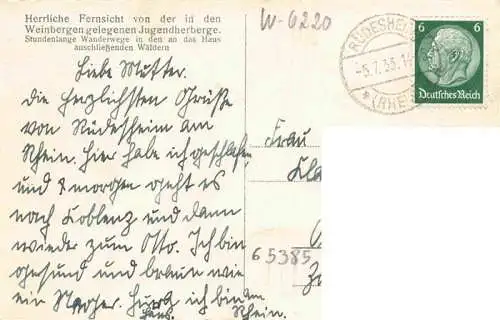 Herrliche Fernsicht von der in den
Weinbergen gelegenen Jugendherberge.
Stundenlange Wanderwege in den an das Haus
anschließenden Wäldern
W-6220
RÜDESHEI
-5.7.33.
(RHEI
6 6
Deutsches Reich
Liebe Mutter.
Die herzlichsten Grüße
von Rüdesheim am
Rhein. Hier habe ich geschlafen
und morgen geht es
nach Koblenz und dann
wieder zum Otto. Ich bin
gesund und braun wie
ein Neger. ich bin am
Rhein.
Frau
Kla
65385